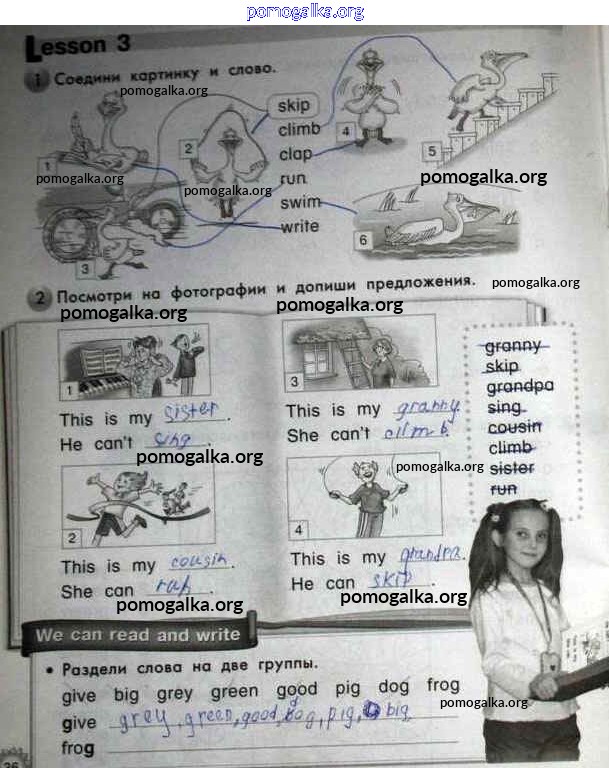 pomogalka.org
Lesson 3
1 Соедини картинку и слово.
pomogalka.org
skip
climb
clap
run
swim
write
1
2
3
4
5
6
pomogalka.org
pomogalka.org
pomogalka.org
2 Посмотри на фотографии и допиши предложения.
pomogalka.org
pomogalka.org
pomogalka.org
1
This is my sister.
He can't sing.
3
This is my granny.
She can't climb.
pomogalka.org
pomogalka.org
2
This is my cousin.
She can run.
4
This is my grandpa.
He can skip.
pomogalka.org
pomogalka.org
granny
skip
grandpa
sing
cousin
climb
sister
run
We can read and write
• Раздели слова на две группы.
give big grey green good pig dog frog
give grey, green, good, dog, pig, big
frog
pomogalka.org
36